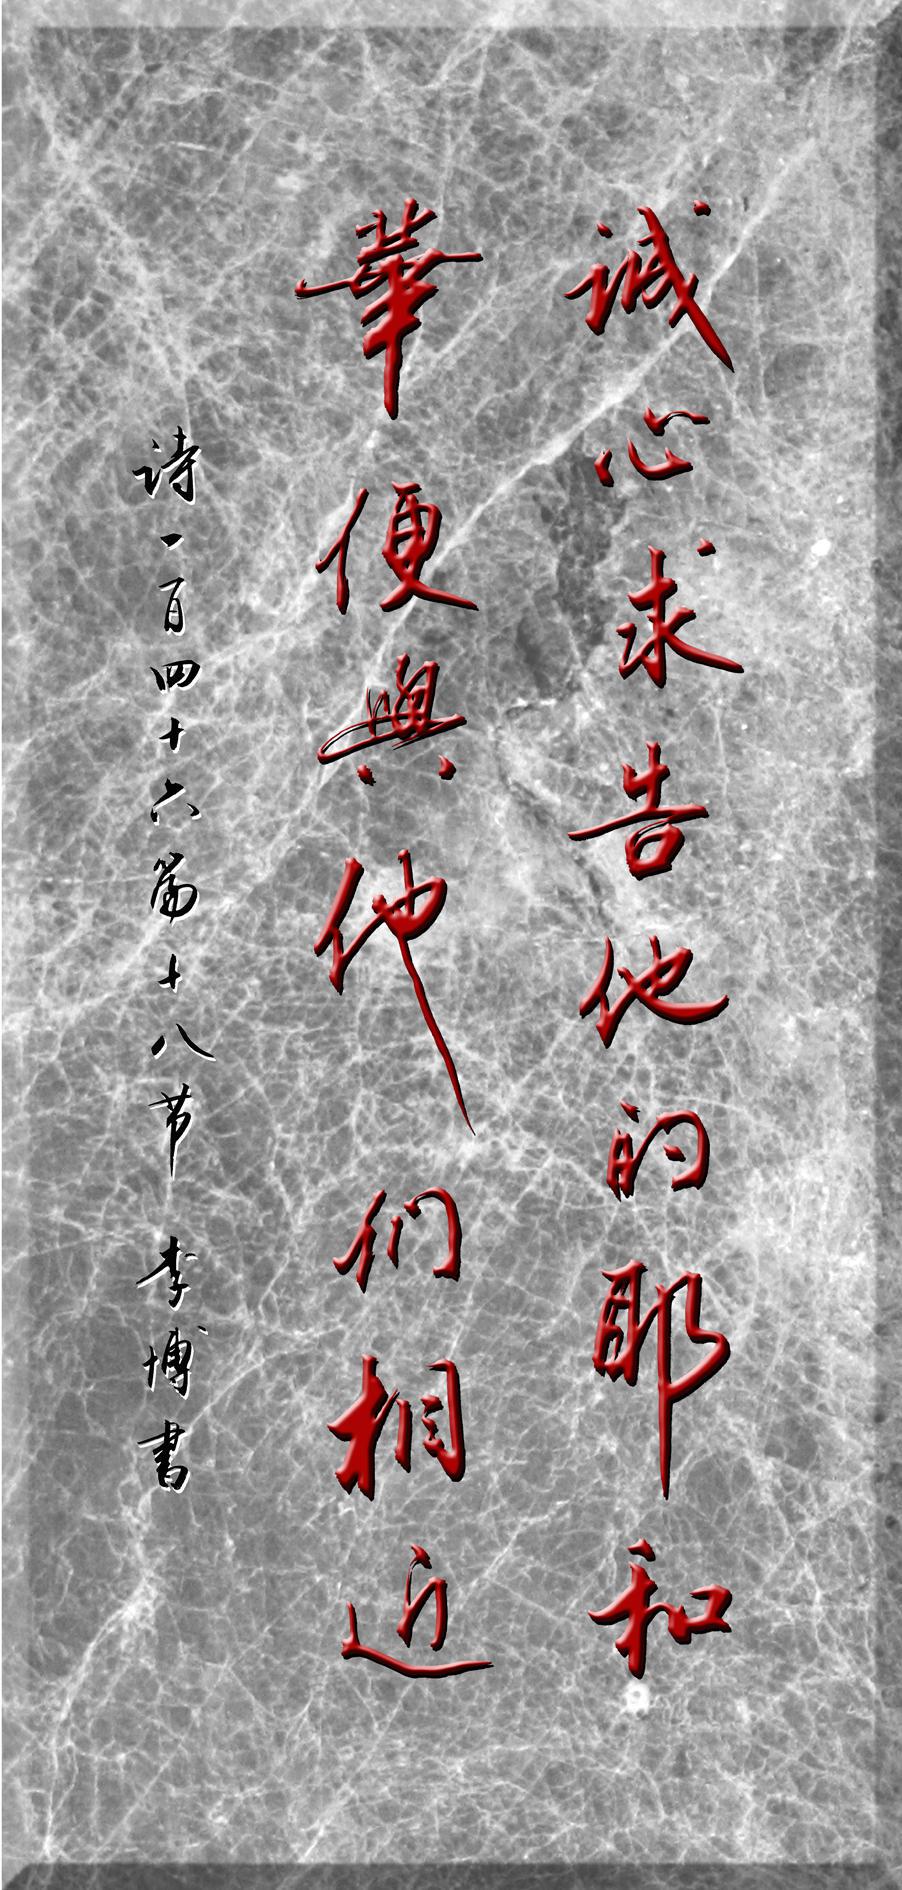 诚心求告他的耶和
華便與他们相近
诗一百四十六篇十八节 李博書